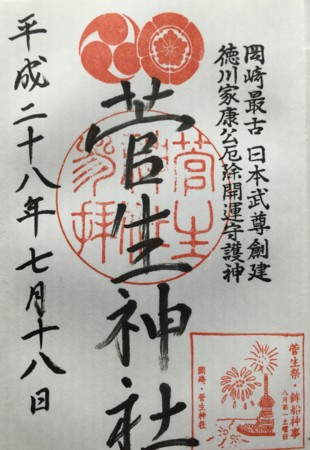 岡崎最古 日本武尊創建
徳川家康公厄除開運守護神
菅生神社
平成二十八年七月十八日
菅生
神社
参拝
菅生祭・鉾船神事
八月第一土曜日
岡崎・菅生神社